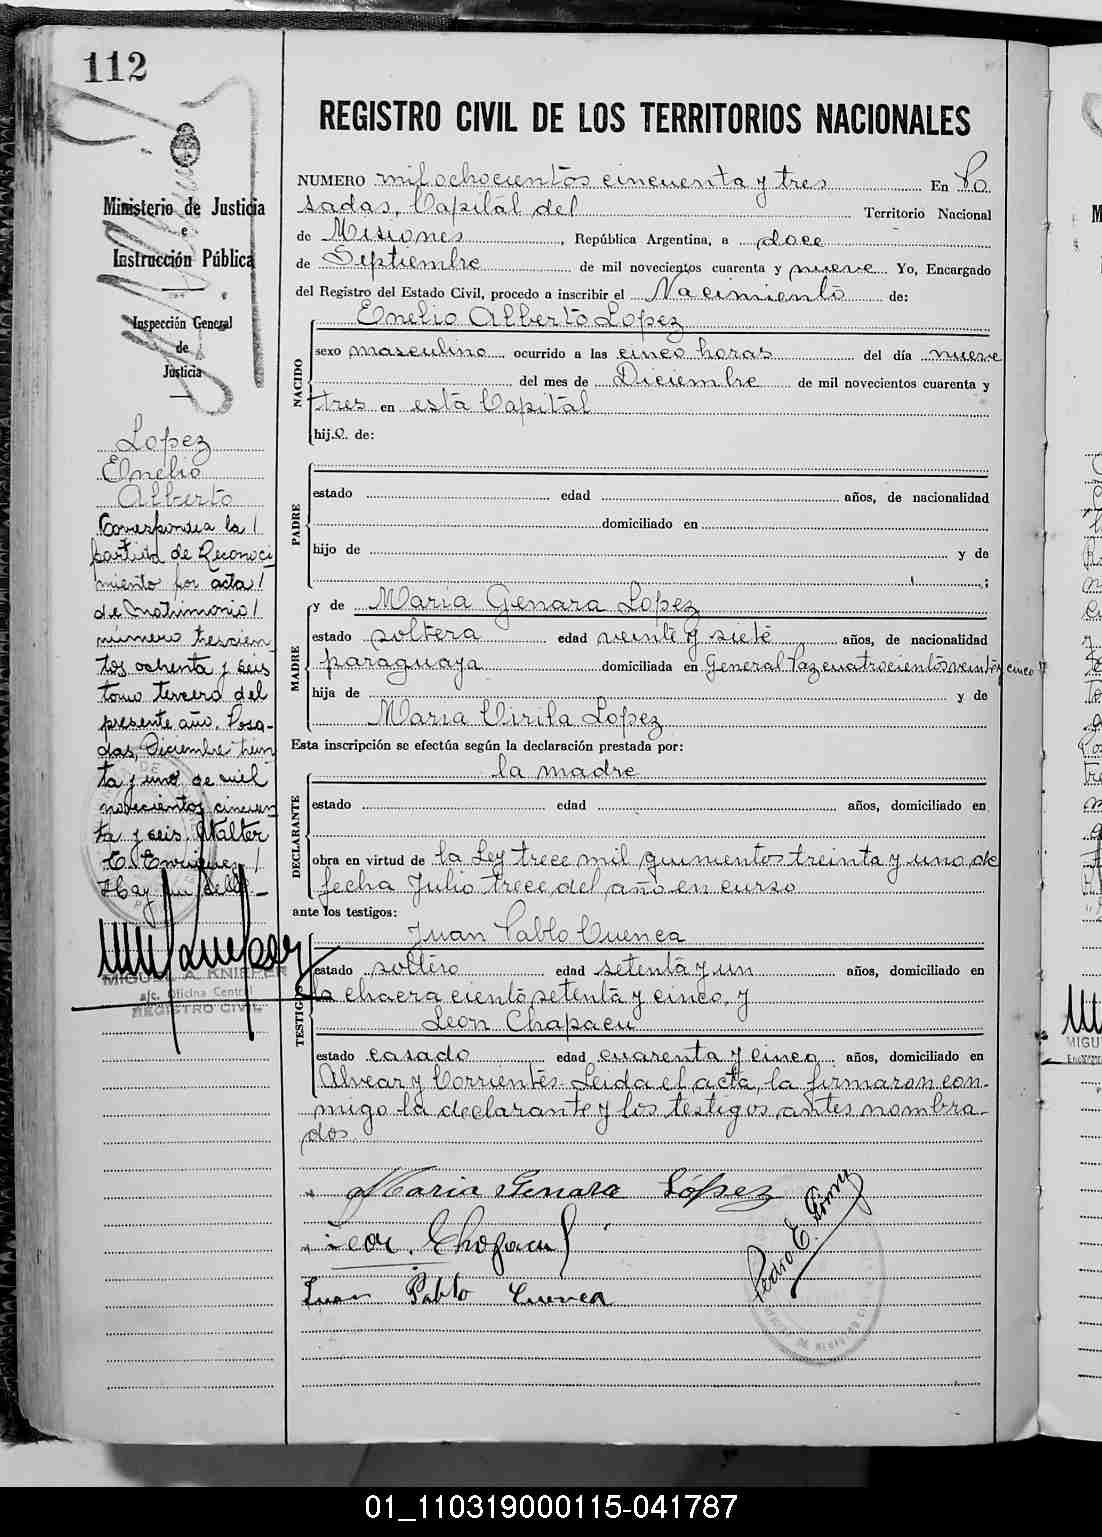 112
Ministerio de Justicia
e
Instrucción Pública
Inspección General
de
Justicia
Lopez
Enelio
Alberto
Corresponde a la /
partida de Reconoci
miento por acta /
de Matrimonio /
número trescien
tos ochenta y seis
tomo tercero del
presente año. Posa-
das, Diciembre trein
ta y uno de mil
novecientos cincuen
ta y seis. Walter
E. Enriquez /
Hay un sello.-
MIGUEL A. KNIEPER
a/c. Oficina Central
REGISTRO CIVIL
REGISTRO CIVIL DE LOS TERRITORIOS NACIONALES
NUMERO mil ochocientos cincuenta y tres En Po
sadas, Capital del Territorio Nacional
de Misiones, República Argentina, a doce
de Septiembre de mil novecientos cuarenta y nueve Yo, Encargado
del Registro del Estado Civil, procedo a inscribir el Nacimiento de:
NACIDO
Enelio Alberto Lopez
sexo masculino ocurrido a las cinco horas del día nueve
del mes de Diciembre de mil novecientos cuarenta y
tres en esta Capital
hij.o. de:
PADRE
estado edad años, de nacionalidad
domiciliado en
hijo de y de
;
MADRE
y de Maria Genara Lopez
estado soltera edad veinte y siete años, de nacionalidad
paraguaya domiciliada en General Paz cuatrocientos veinte y cinco
hija de y de
Maria Virila Lopez
Esta inscripción se efectúa según la declaración prestada por:
DECLARANTE
la madre
estado edad años, domiciliado en
obra en virtud de la Ley trece mil quinientos treinta y uno de
fecha Julio trece del año en curso
ante los testigos:
TESTIGOS
Juan Pablo Cuenca
estado soltero edad setenta y un años, domiciliado en
la chacra ciento setenta y cinco, y
Leon Chapacu
estado casado edad cuarenta y cinco años, domiciliado en
Alvear y Corrientes. Leida el acta, la firmaron con-
migo la declarante y los testigos antes nombra-
dos.
Maria Genara López
Leon Chapacu
Juan Pablo Cuenca
01_110319000115-041787